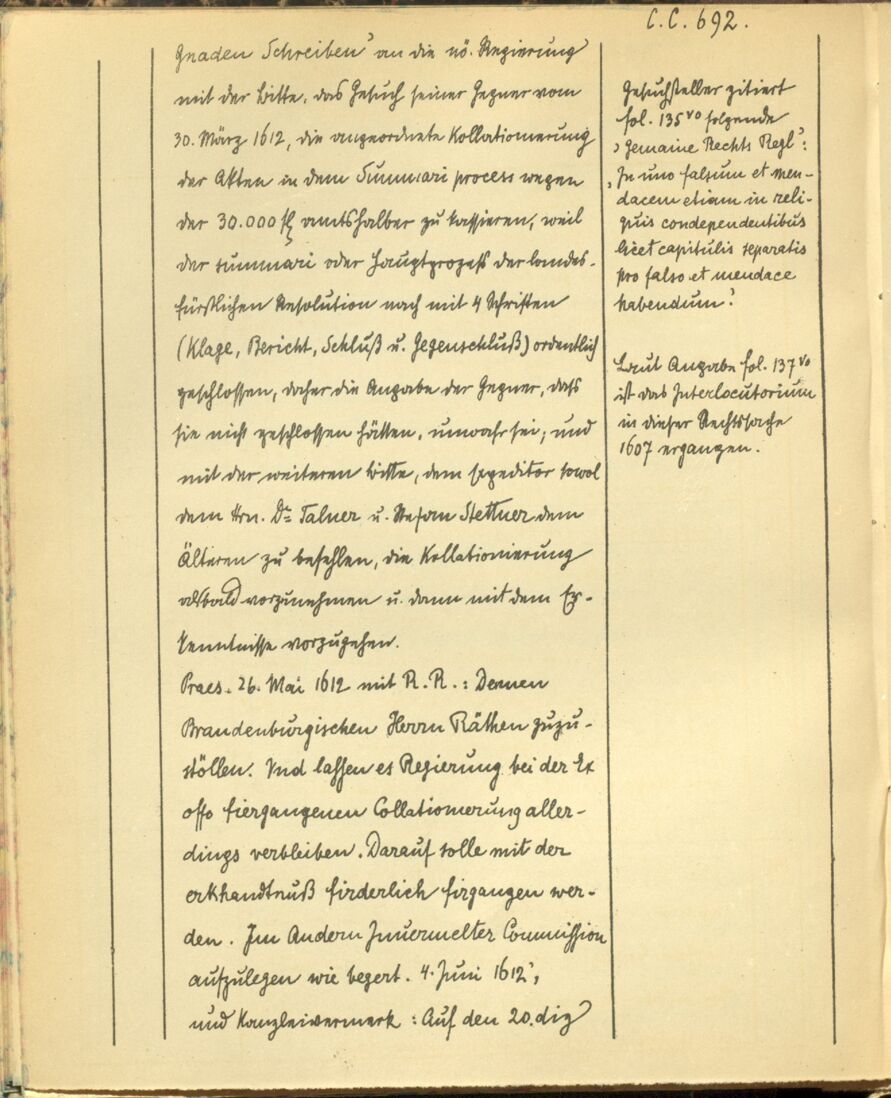 C.C. 692.
Gnaden Schreiben' an die nö. Regierung
mit der Bitte, das Gesuch seiner Gegner vom
30. März 1612, die angeordnete Kollationierung
der Akten in dem Summari process wegen
der 30.000 fl amtshalber zu kassieren, weil
der summari oder Hauptprozeß der landes-
fürstlichen Resolution nach mit 4 Schriften
(Klage, Bericht, Schluß u. Gegenschluß) ordentlich
geschlossen, daher die Angabe der Gegner, dass
sie nicht geschlossen hätten, unwahr sei; und
mit der weiteren Bitte, dem Expeditor sowol
dem Hrn. Dr. Talner u. Stefan Stettner dem
Älteren zu befehlen, die Kollationierung
alsbald vorzunehmen u. dann mit dem Er-
kenntnisse vorzugehen.
Praes. 26. Mai 1612 mit R.R.: Dennen
Brandenburgischen Herrn Räthen zuzu-
stöllen. Vnd lassen es Regierung bei der Ex
offo fiergangenen Collationierung aller-
dings verbleiben. Darauf solle mit der
erkhandtnuß firderlich firgangen wer-
den. Im Andern Inuermelter Commission
aufzulegen wie begert. 4. Juni 1612',
und Kanzleivermerk: Auf den 20.dig
Gesuchsteller zitiert
fol. 135vo folgende
'Gemaine Rechts Regl':
'In uno falsum et men-
dacem etiam in reli-
quis condependentibus
licet capitulis separatis
pro falso et mendace
habendum'.
Laut Angabe fol. 137vo
ist das Interlocutorium
in dieser Rechtssache
1607 ergangen.